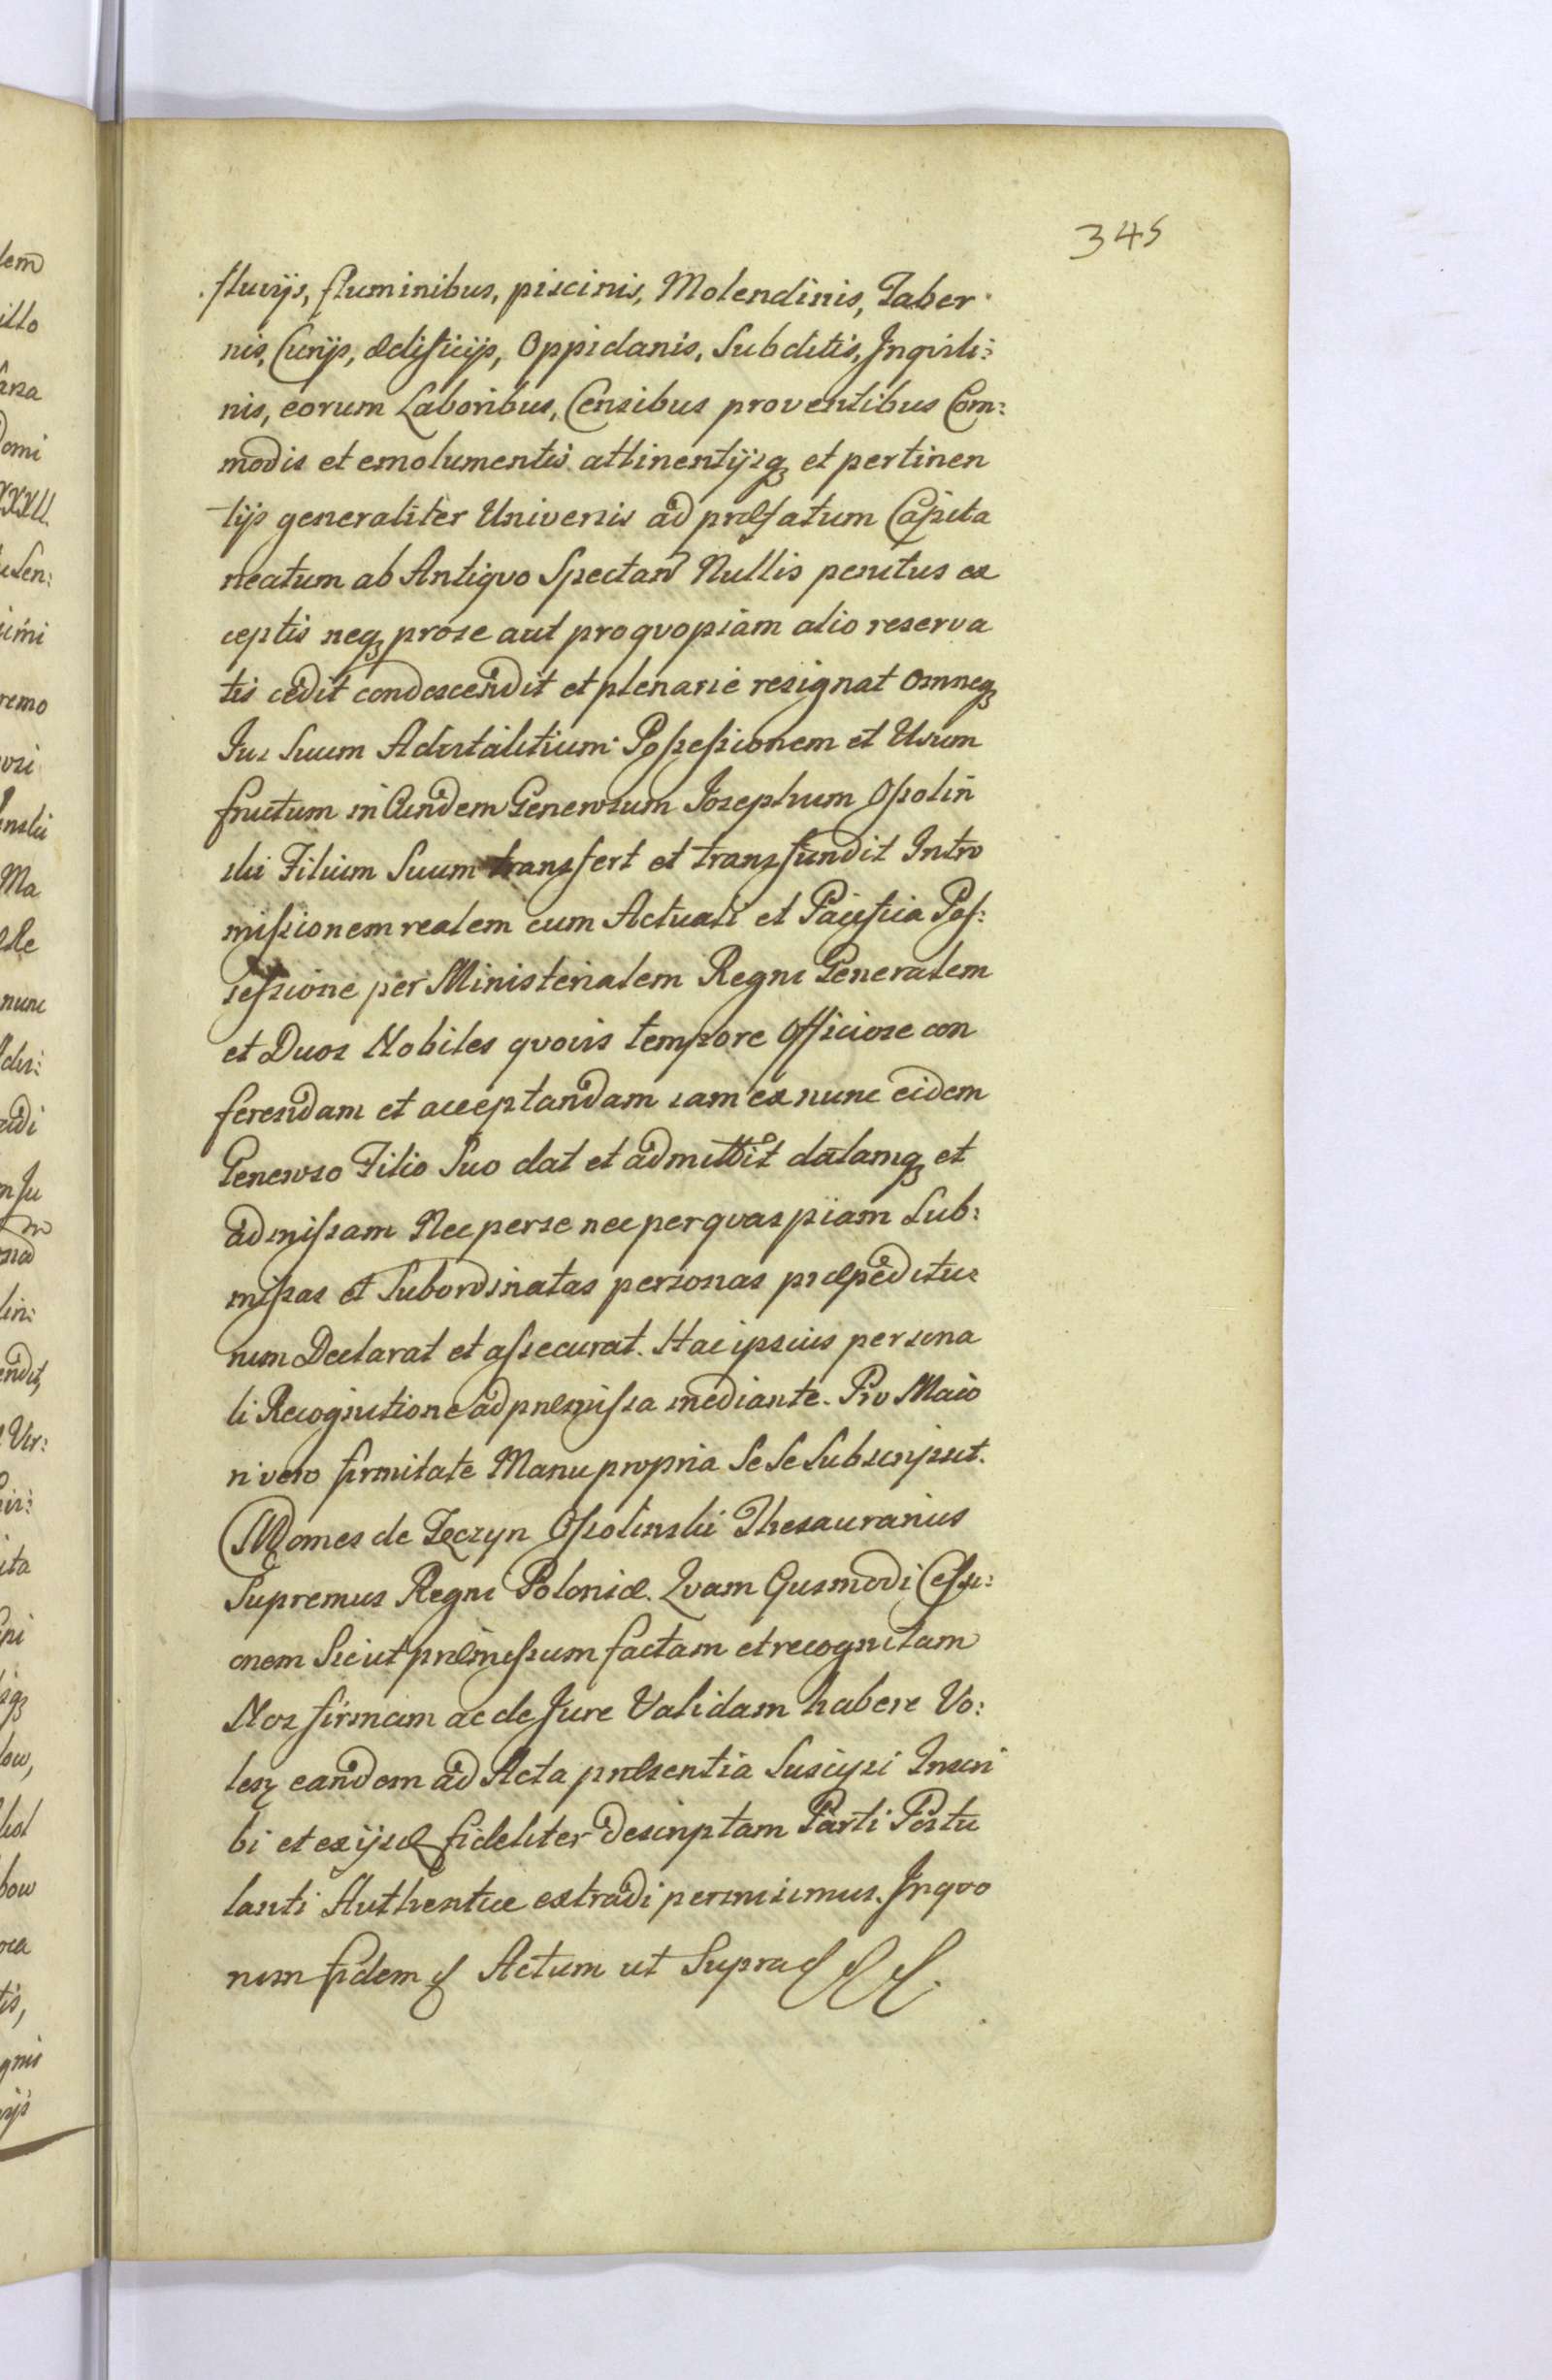 345
fluvijs, fluminibus, piscinis, Molendinis, Taber
nis, Curijs, ædificijs, Oppidanis, Subditis, Inqvili:
nis, eorum Laboribus, Censibus proventibus Com:
modis et emolumentis attinentijsq; et pertinen
tijs generaliter Universis ad præfatum Capita
neatum ab Antiqvo Spectan Nullis penitus ex
ceptis neq; pro se aut pro qvopiam alio reserva
tis cedit condescendit et plenarie resignat omneq;
Jus Suum Advitalitium Possessionem et Usum
fructum in Eundem Generosum Josephum Ossolin
ski Filium Suum transfert et transfundit Intro
missionem realem cum Actuali et Pacifica Pos:
sessione per Ministerialem Regni Generalem
et Duos Nobiles qvovis tempore Officiose con
ferendam et acceptandam iam ex nunc eidem
Generoso Filio Suo dat et admittit datamq; et
admissam Nec per se nec per qvaspiam Sub:
missas et Subordinatas personas præpeditu
rum Declarat et assecurat. Hac ipsius persona
li Recognitione ad præmissa mediante. Pro Maio
ri vero firmitate Manu propria Se Se Subscripsit.
Comes de Tęczyn Ossolinski Thesaurarius
Supremus Regni Poloniæ. Qvam Ejusmodi Cessi:
onem Sicut præmissum factam et recognitam
Nos firmam ac de Jure Validam habere Vo:
len eandem ad Acta præsentia Suscipi Inscri
bi et ex ijsd fideliter descriptam Parti Postu
lanti Authentice extradi permisimus. In qvo
rum fidem Actum ut Supra